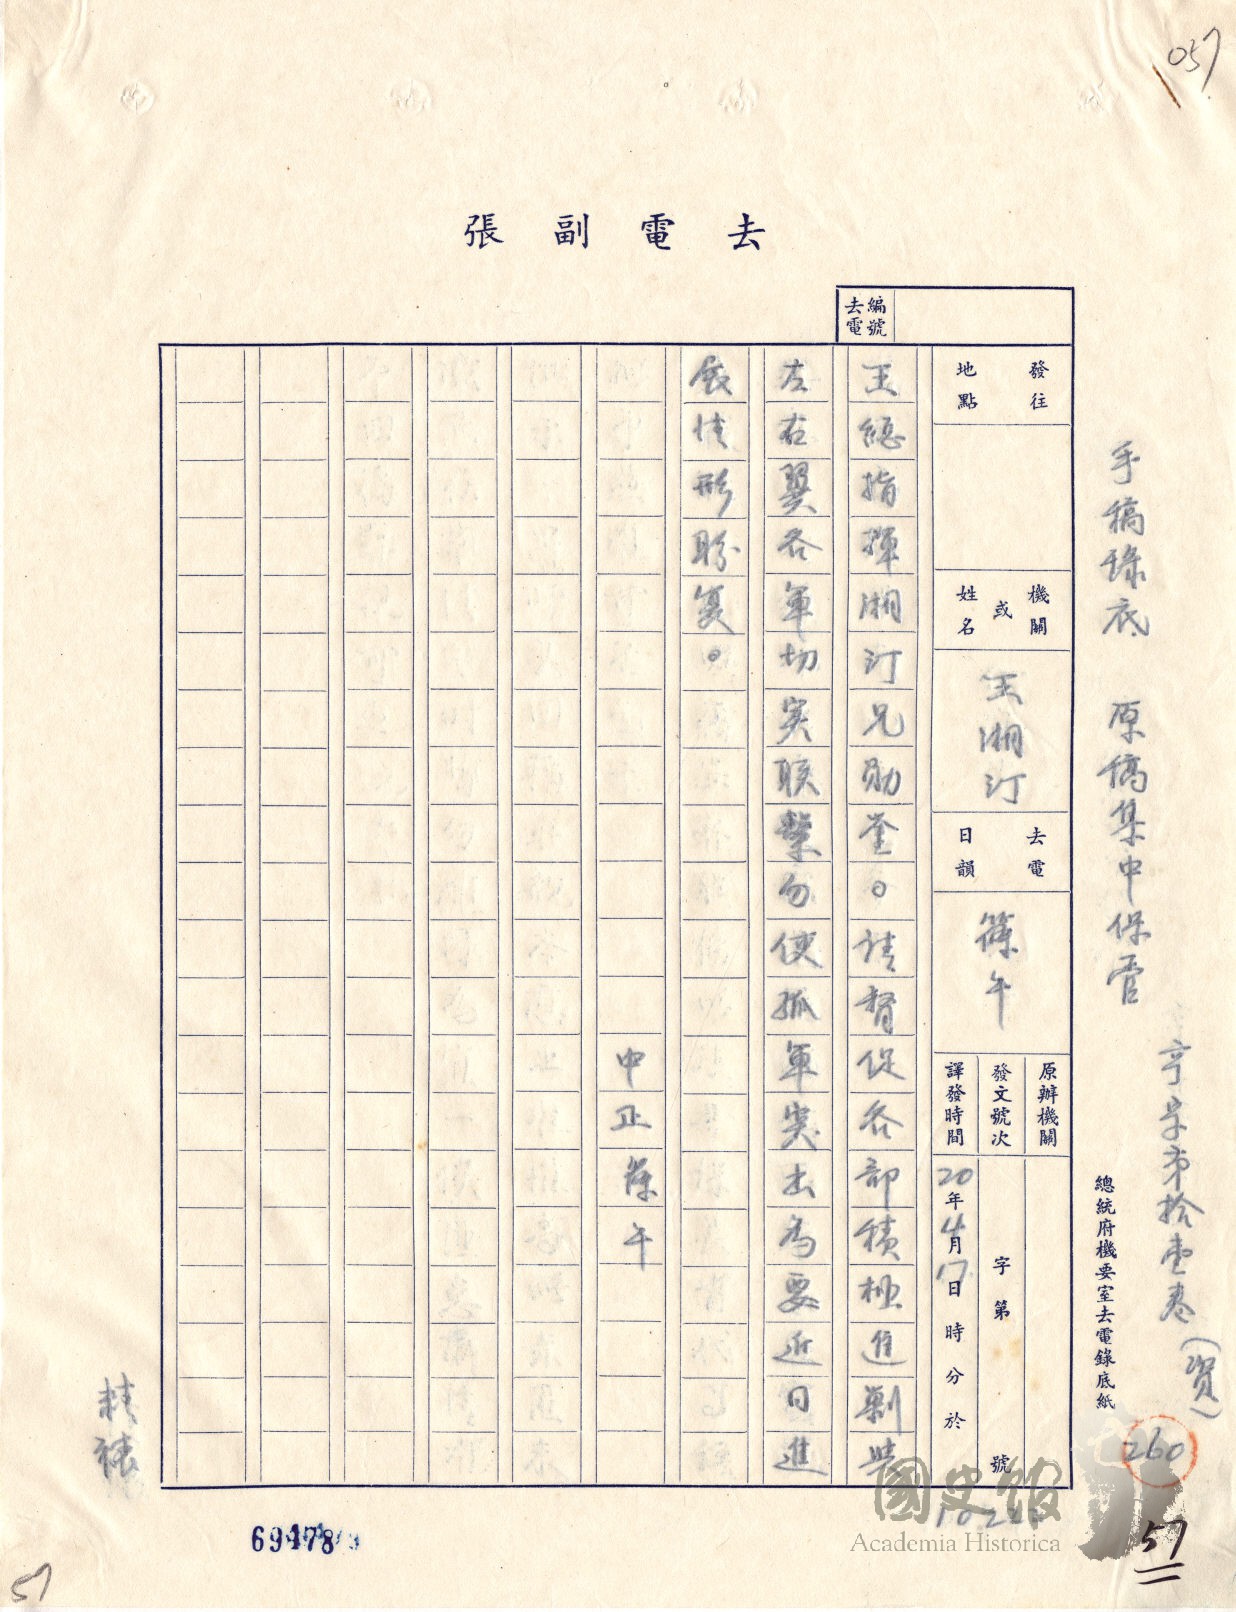 057
去電副張
去電編號
發往地點
機關或姓名
王湘汀
去電日韻
篠午
原辦機關
發文號次
字第 號
譯發時間
20年4月17日 時 分於
王總指揮湘汀兄勛鑒。請督促各部積極進剿与
左右翼各軍切实联繫勿使孤軍突出為要近日進
展情形盼复。
中正篠午
手稿錄底 原稿集中保管
亨字第拾壹卷(資)
總統府機要室去電錄底紙
260
57
精裱
69478
51
國史館
Academia Historica